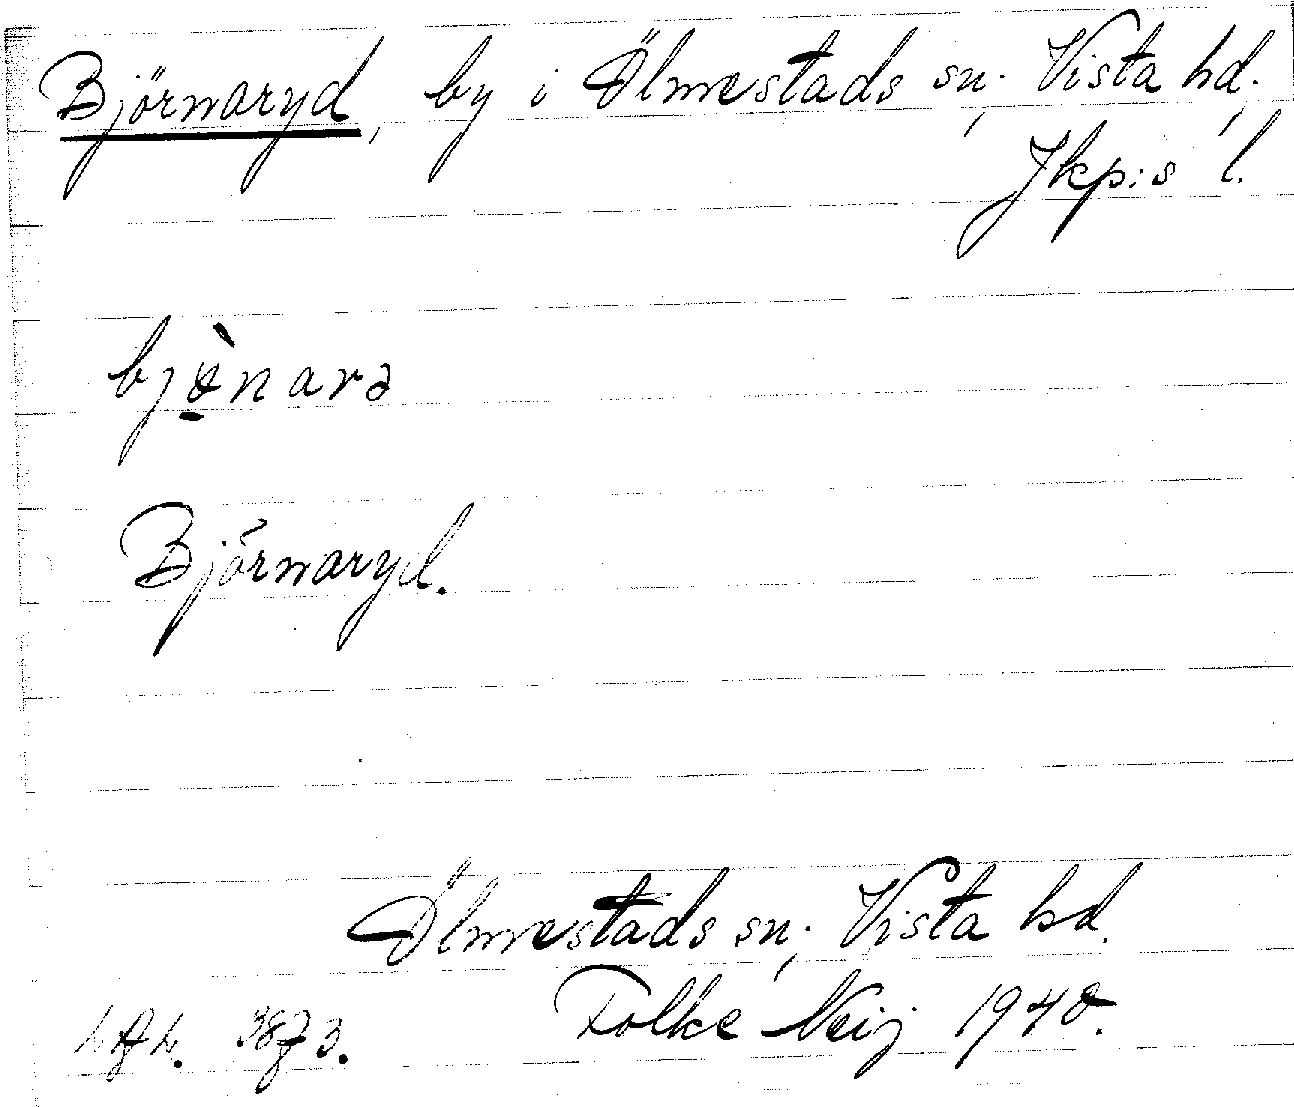 Björnaryd, by i Ölmestads sn, Vista hd,
Jkp:s l.
bjø̱̀narə
Björnaryd.
Ölmestads sn, Vista hd.
Folke Neij 1940.